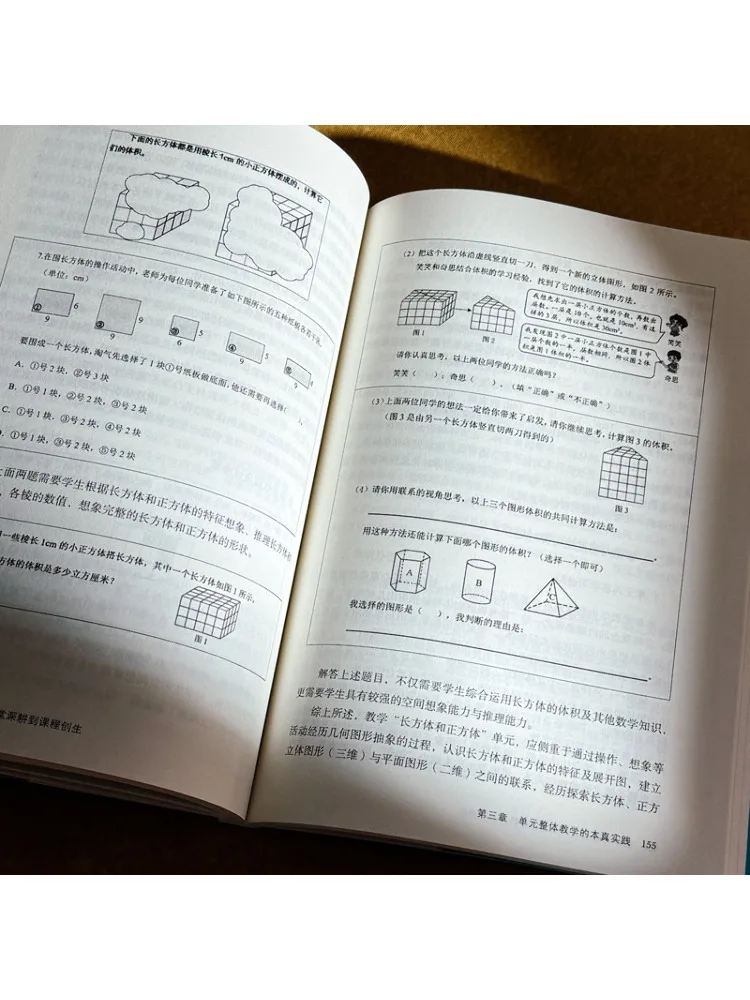 下面的长方体都是用棱长1cm的小正方体摆成的，计算它
们的体积。
7.在围长方体的操作活动中，老师为每位同学准备了如下图所示的五种纸板各若干张。
（单位：cm）
① 6
9
② 9
9
③ 5
6
④ 5
9
⑤
5
要围成一个长方体，淘气先选择了1块①号纸板做底面，他还需要再选择（ ）。
A. ①号2块，②号3块
B. ①号1块，②号2块，③号2块
C. ①号1块，③号2块，④号2块
①号1块，③号2块，⑤号2块
上面两题需要学生根据长方体和正方体的特征想象、推理长方体和
各棱的数值，想象完整的长方体和正方体的形状。
一些棱长1cm的小正方体搭长方体，其中一个长方体如图1所示，
方体的体积是多少立方厘米？
图1
堂深耕到课程创生
（2）把这个长方体沿虚线竖直切一刀，得到一个新的立体图形，如图2所示。
笑笑和奇思结合体积的学习经验，找到了它的体积的计算方法。
图1
图2
我想先求出一层小正方体的个数，再数出
层数。一层是10个，也就是10cm³，有这
样的3层，所以体积是30cm³。
笑笑
我发现图2中一层小正方体个数是图1中
一层个数的一半，层数相同，所以图2体
积是图1体积的一半。
奇思
请你认真思考，以上两位同学的方法正确吗？
笑笑（ ）；奇思（ ）。（填“正确”或“不正确”）
（3）上面两位同学的想法一定给你带来了启发，请你继续思考，计算图3的体积。
（图3是由另一个长方体竖直切两刀得到的）
图3
（4）请你用联系的视角思考，以上三个图形体积的共同计算方法是：
。
用这种方法还能计算下面哪个图形的体积？（选择一个即可）
A
B
C
我选择的图形是（ ），我判断的理由是：
。
解答上述题目，不仅需要学生综合运用长方体的体积及其他数学知识，
更需要学生具有较强的空间想象能力与推理能力。
综上所述，教学“长方体和正方体”单元，应侧重于通过操作、想象等
活动经历几何图形抽象的过程，认识长方体和正方体的特征及展开图，建立
立体图形（三维）与平面图形（二维）之间的联系，经历探索长方体、正方
第三章 单元整体教学的本真实践 155